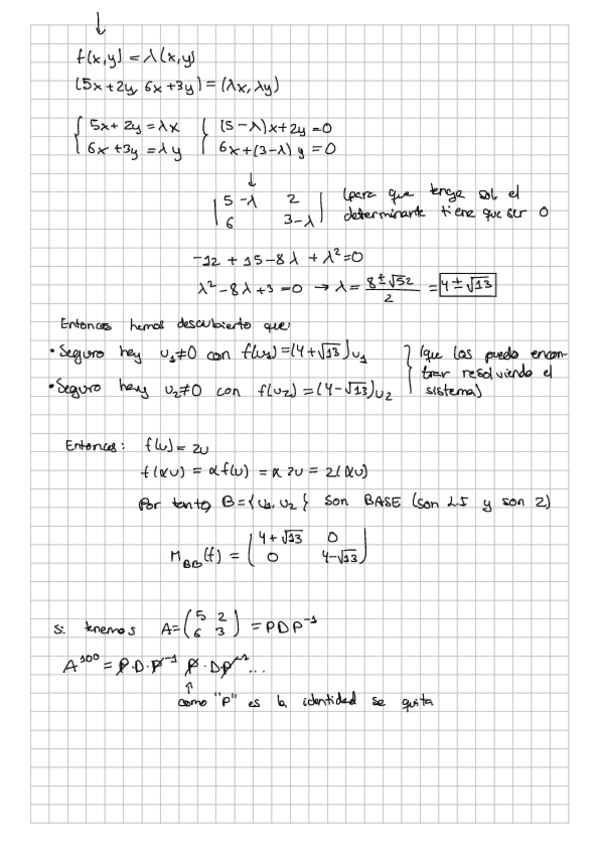 f(x,y) = λ(x,y)
(5x+2y, 6x+3y) = (λx, λy)
{ 5x+2y = λx { (5-λ)x+2y = 0
6x+3y = λy 6x+(3-λ)y = 0
| 5-λ 2 | (para que tenga sol. el
6 3-λ determinante tiene que ser 0
-12 + 15 - 8λ + λ² = 0
λ² - 8λ + 3 = 0 → λ = (8 ± √52)/2 = 4 ± √13
Entonces hemos descubierto que:
• Seguro hay u₁≠0 con f(u₁) = (4+√13)u₁ } (que los puedo encon-
trar resolviendo el
• Seguro hay u₂≠0 con f(u₂) = (4-√13)u₂ sistema)
Entonces: f(u) = 2u
f(αu) = αf(u) = α2u = 2(αu)
Por tanto, B = {u₁, u₂} son BASE (son L.I y son 2)
M_BB(f) = | 4+√13 0 |
0 4-√13
Si tenemos A = (5 2
6 3) = PDP⁻¹
A¹⁰⁰ = P·D·P⁻¹ P·DP⁻¹...
↑
como "P" es la identidad se quita